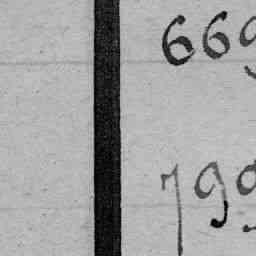 669
799